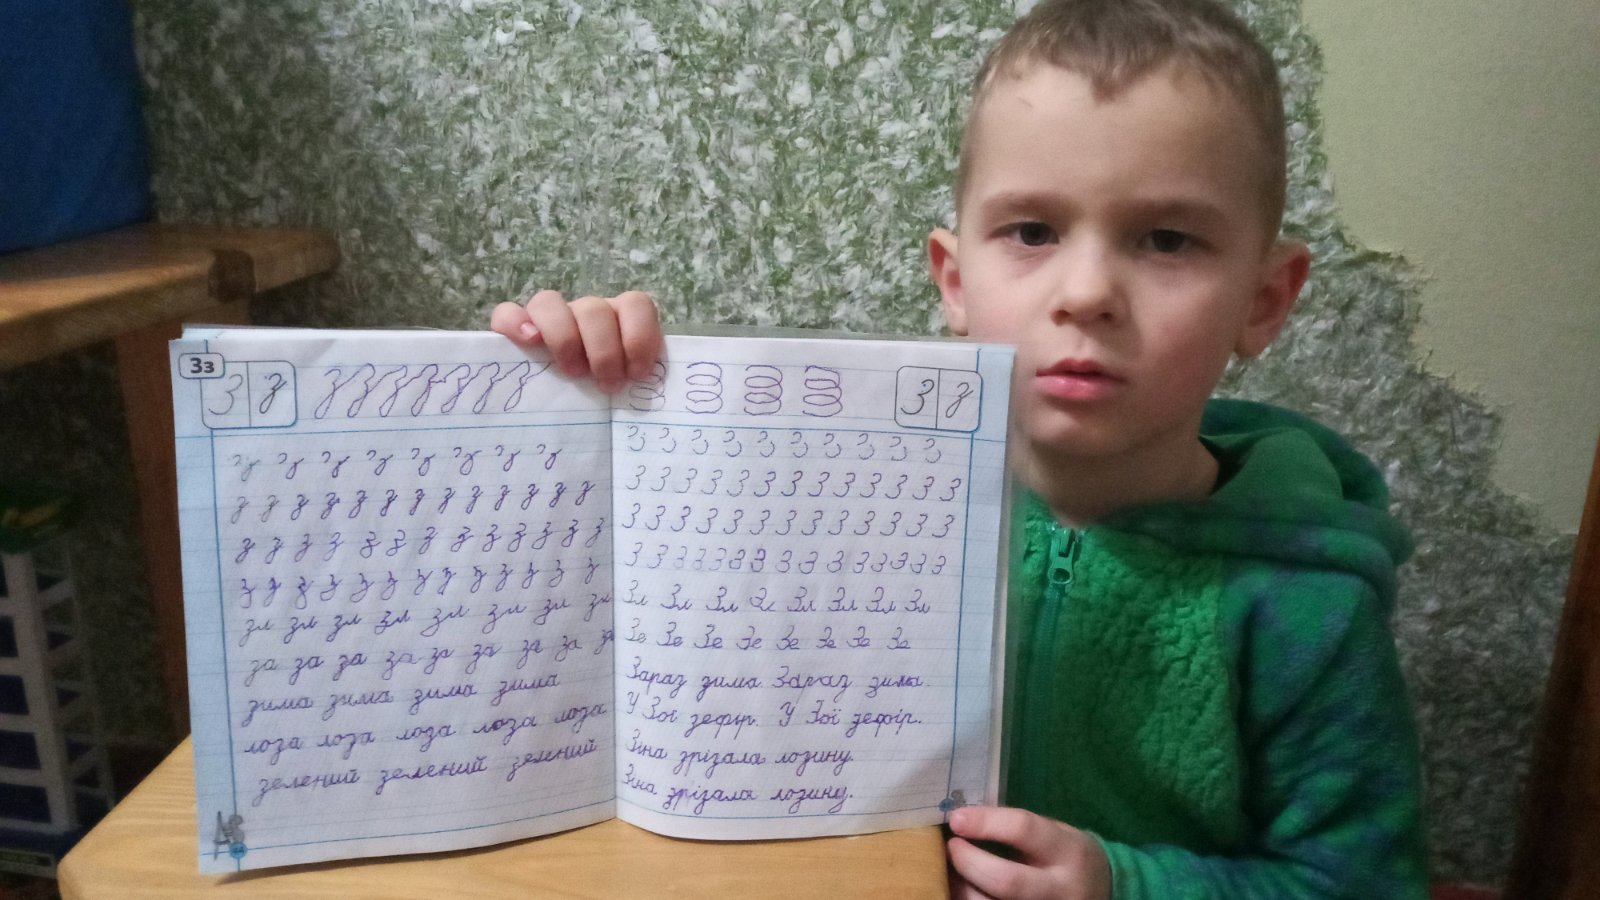 Зз
З з
з з з з з з з з з з з з
з з з з з з з з з з з з
з з з з з з з з з з з з
зл зл зл зл зл зл зл зл
за за за за за за за за за
зима зима зима зима
лоза лоза лоза лоза лоза
зелений зелений зелений
З з
З З З З З З З З З З З З З
З З З З З З З З З З З З З
З З З З З З З З З З З З З З
Зл Зл Зл Зл Зл Зл Зл Зл
Зе Зе Зе Зе Зе Зе Зе Зе
Зараз зима. Зараз зима.
У Зої зефір. У Зої зефір.
Зіна зрізала лозину.
Зіна зрізала лозину.